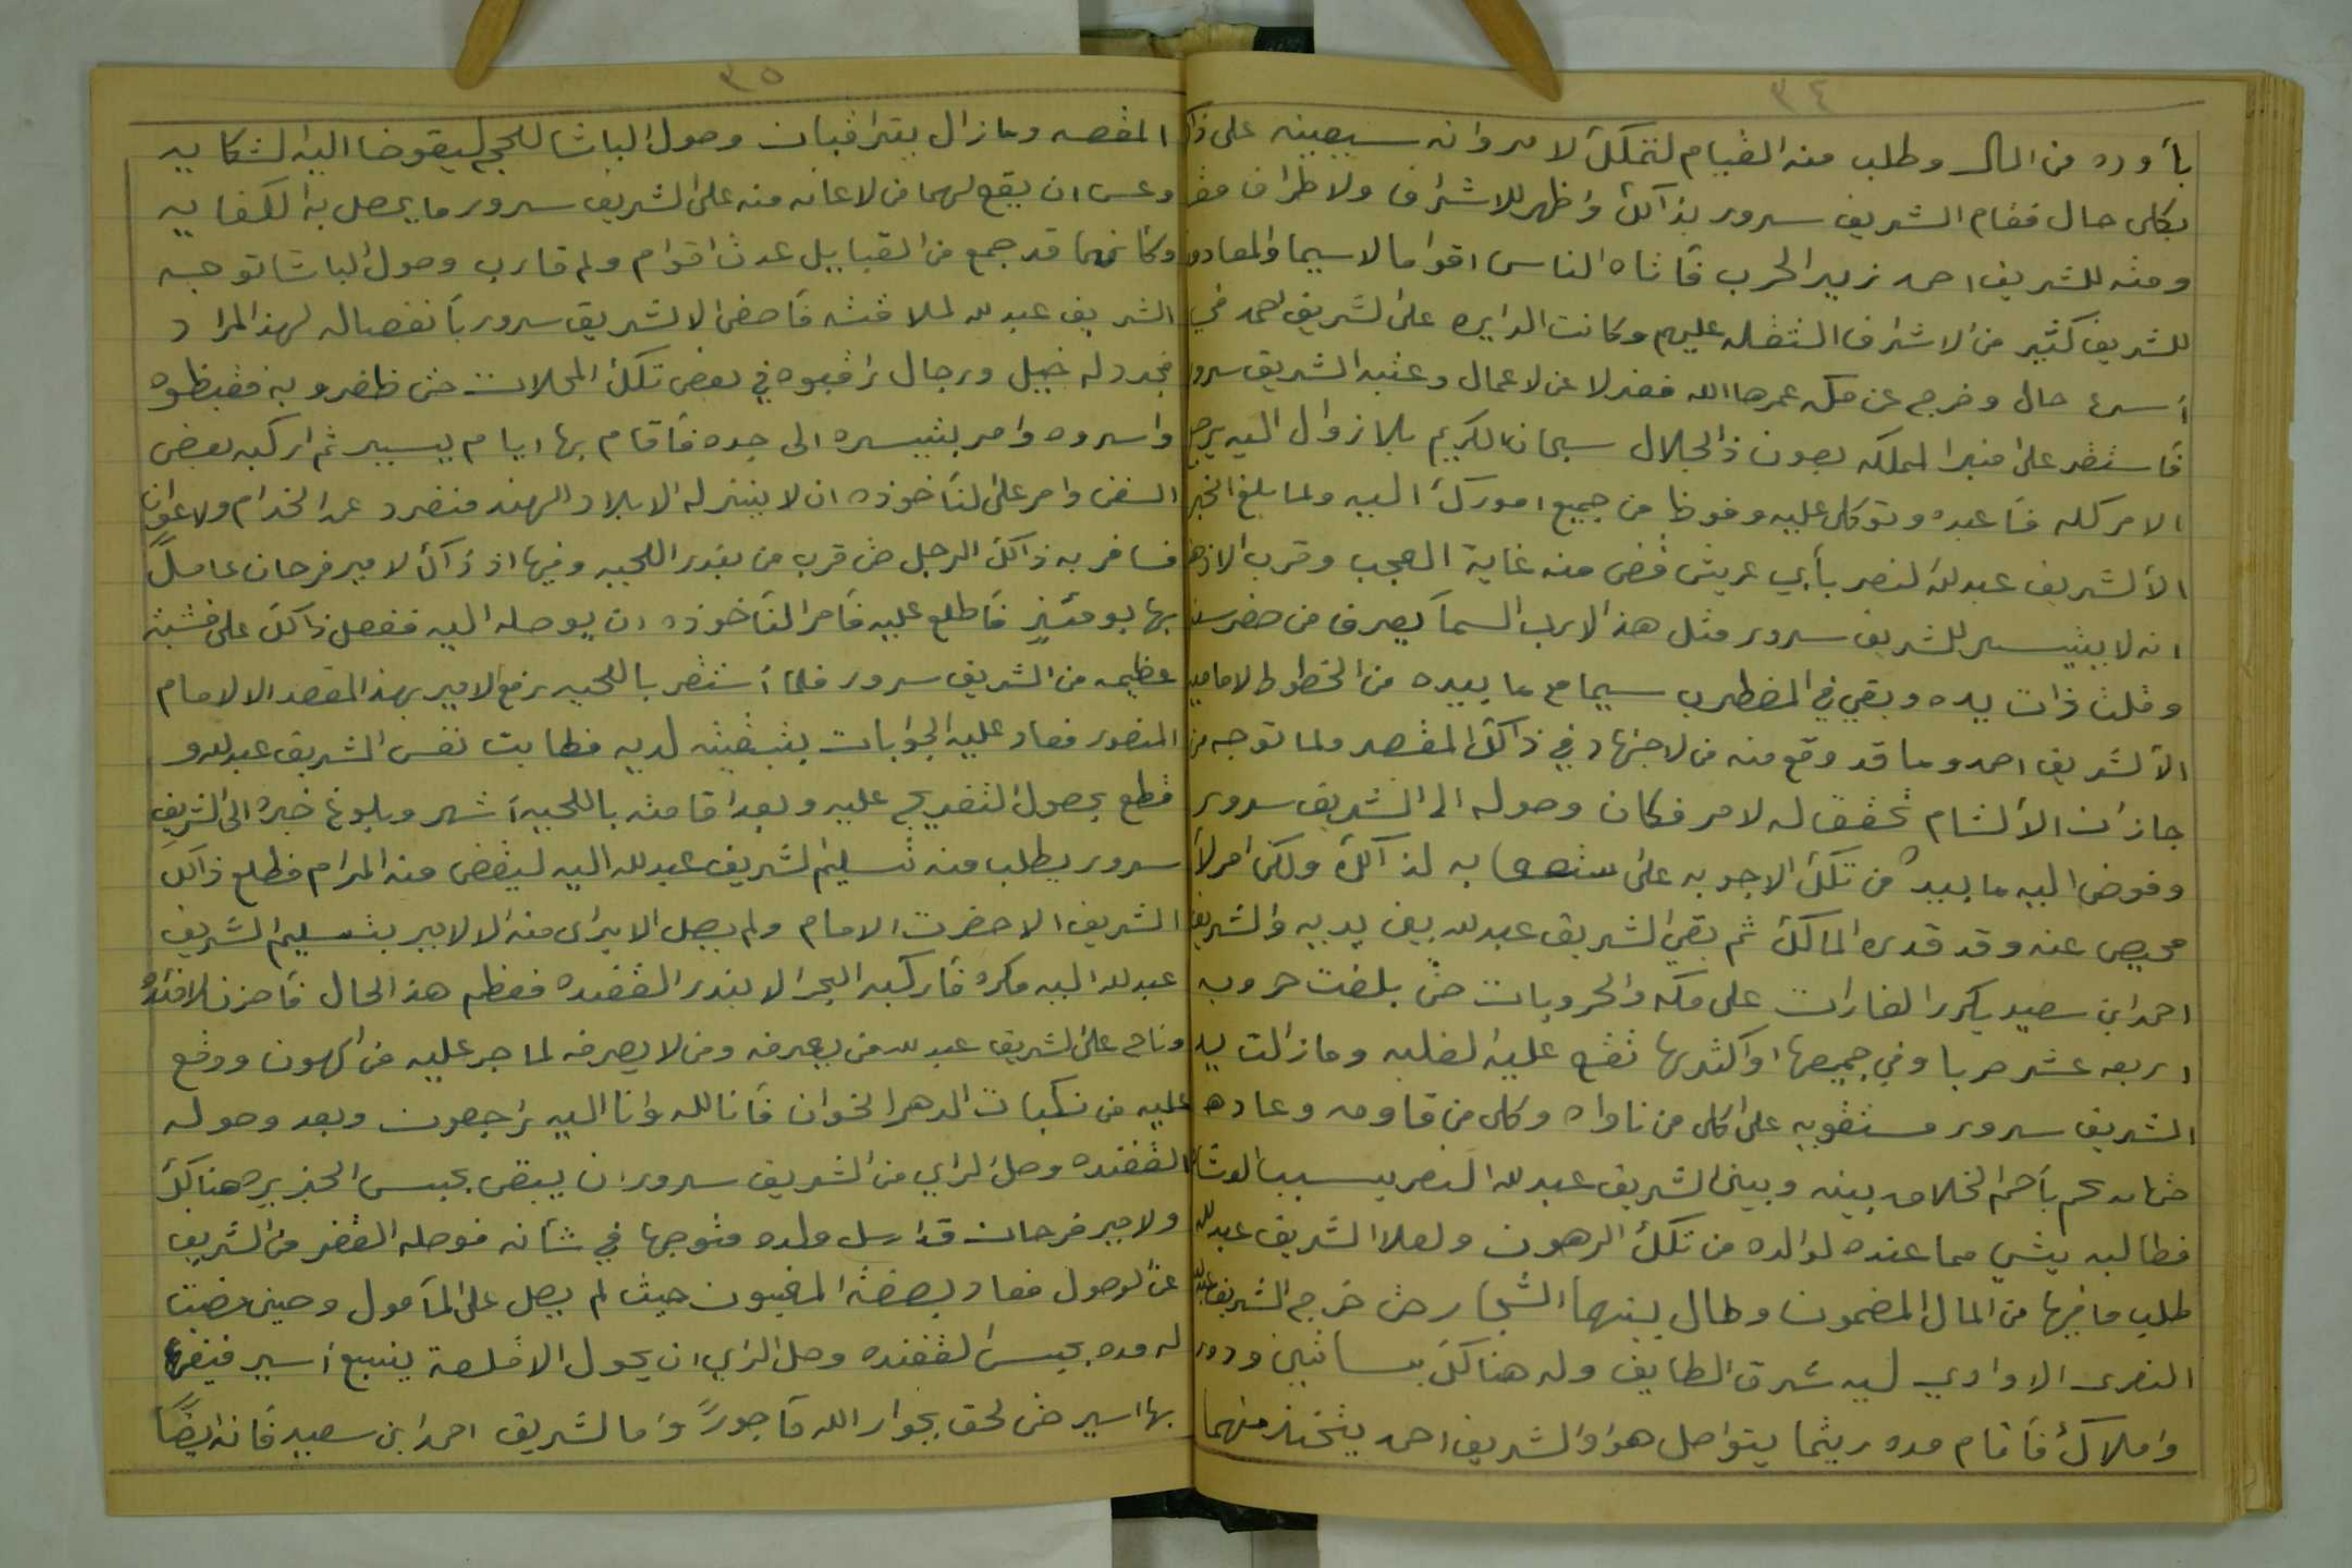 ٣٤
بأورده من المال وطلب منه القيام لتملك الامر وانه سيعينه على ذا
بكلى حال فقام الشريف سرور بذالك واظهر للاشراف ولاطراف
ومثه للشريف احمد نزير الحرب فأتاه الناس اقواما لاسيما والمعادون
للشريف كثير من الاشراف الثقله عليهم وكانت الدايره على الشريف احمد في
أسرع حال وخرج عن مكه عمرها الله فعزلا عن لاعمال وعقبه الشريف سرور
فاستقر على منبر المملكه بعون ذالجلال سبحان الكريم بلا زوال اليه يرجع
الامر كله فأعبده وتوكل عليه وفوظا من جميع امورك اليه ولما بلغ الخبر
الألشريف عبدلله لنصر بأبي عريش قضى منه غاية العجب وقرب الاذهن
انه لا يتيسر للشريف سرور مثل هذ الارب السمآ يصرف من حضر
وقلت ذات يده وبقي في المضطرب سيما مع ما بيده من الخطوط لامامي
الألشريف احمد وما قد وقع منه من لاجتهاد في ذالك المقصد ولما توجه من
جازان الألشام تحقق له لامر فكان وصوله الا الشريف سرور
وفوض اليه ما بيده من تلك الاجوبه على به لذآلك ولكن امر لأ
محيص عنه وقد قدره المالك ثم بقي الشريف عبدلله بين يديه والشريف
احمد ابن سعيد يكرر الغارات على مكه والحروبات حتى بلغت حروبه
اربعه عشر حربا وفي جميعها او اكثرها تقع عليه الغلبه وما زالت يد
الشريف سرور مستقويه على كلى من ناواه وكلى من قاومه وعاده
حتى انه نجم بأحم الخلاف بينه وبين الشريف عبدلله النصر بسبب الوشاه
فطالبه بشي مما عنده لوالده من تلك الرهون ولعلا الشريف عبدلله
طلب ما فيها من المال المضمون وطال بينهما الشجار حتى خرج الشريف عبدلله
النصرى الا وادي ليه شرق الطايف وله هناك بساتين ودور
واملاك فأقام مده ريثما يتواصل هو والشريف احمد يتخذ منهما
٣٥
المقصه وما زال يترقبان وصول الباشا للحج ليقوضا اليه الشكايه
وعسى ان يقع لهما من لاعانه منه على الشريف سرور ما يحصل به الكفايه
وكأنهما قد جمع من القبايل عدت اقوام ولم قارب وصول الباشا توجه
الشريف عبدلله لملاقته فأحضى الا الشريف سرور بأنفصاله لهذ المراد
فجرد له خيل ورجال تراقبوه في بعض تلك المحلات حتى ظفرو به فقبظوه
واسروه وامر بتيسره الى جده فأقام بها ايام يسير ثم اركبه بعض
السفن وامر على لنأخوذه ان لا ينزله الا بلاد الهند منفرد عن الخدام ولاعوان
فسافر به ذالك الرجل حتى قرب من بندر اللحيه وفيها اذ ذاك لامير فرحان عاملً
بها يومئيز فأطلع عليه فأمر النأخوذه ان يوصله اليه ففعل ذالك على خشيه
عظيمه من الشريف سرور فلما أستقر باللحيه رفع الامير بهذ المقصد الا لامام
المنصور فعاد عليه الجوابات بتبقيته لديه فطابت نفس الشريف عبدلله و
قطع بحصول التفريج عليه وبعد اقامته باللحيه أشهر وبلوغ خبره الى الشريف
سرور يطلب منه تسليم الشريف عبدلله اليه ليقضى منه المرام فطلع ذالك
الشريف الا حضرت الامام ولم يصل الا براى منه الا لامير بتسليم الشريف
عبدلله اليه مكره فأركبه البحر الا بندر القفنده فعظم هذ الحال فأحزن لافئده
وناح على الشريف عبدلله من يعرفه ومن لا يعرفه لما جر عليه من الهون ووقع
عليه من نكبات الدهر الخوان فأنا لله وانا اليه راجعون وبعد وصوله
القفنده وصل الراي من الشريف سرور ان يبقى بحبس الجزيره هناك
ولامير فرحان قد ارسل ولده متوجها في شأنه فوصله القفر من الشريف
عن الوصول فعاد بصفة المغبون حيث لم يصل على المآمول وحين مضت
له مده بحبس القفنده وصل الراي ان يحول الا قلعة ينبع أسير فبقي
بها اسير حتى لحق بجوار الله مأجورً واما الشريف احمد ابن سعيد فأنه ايضًا